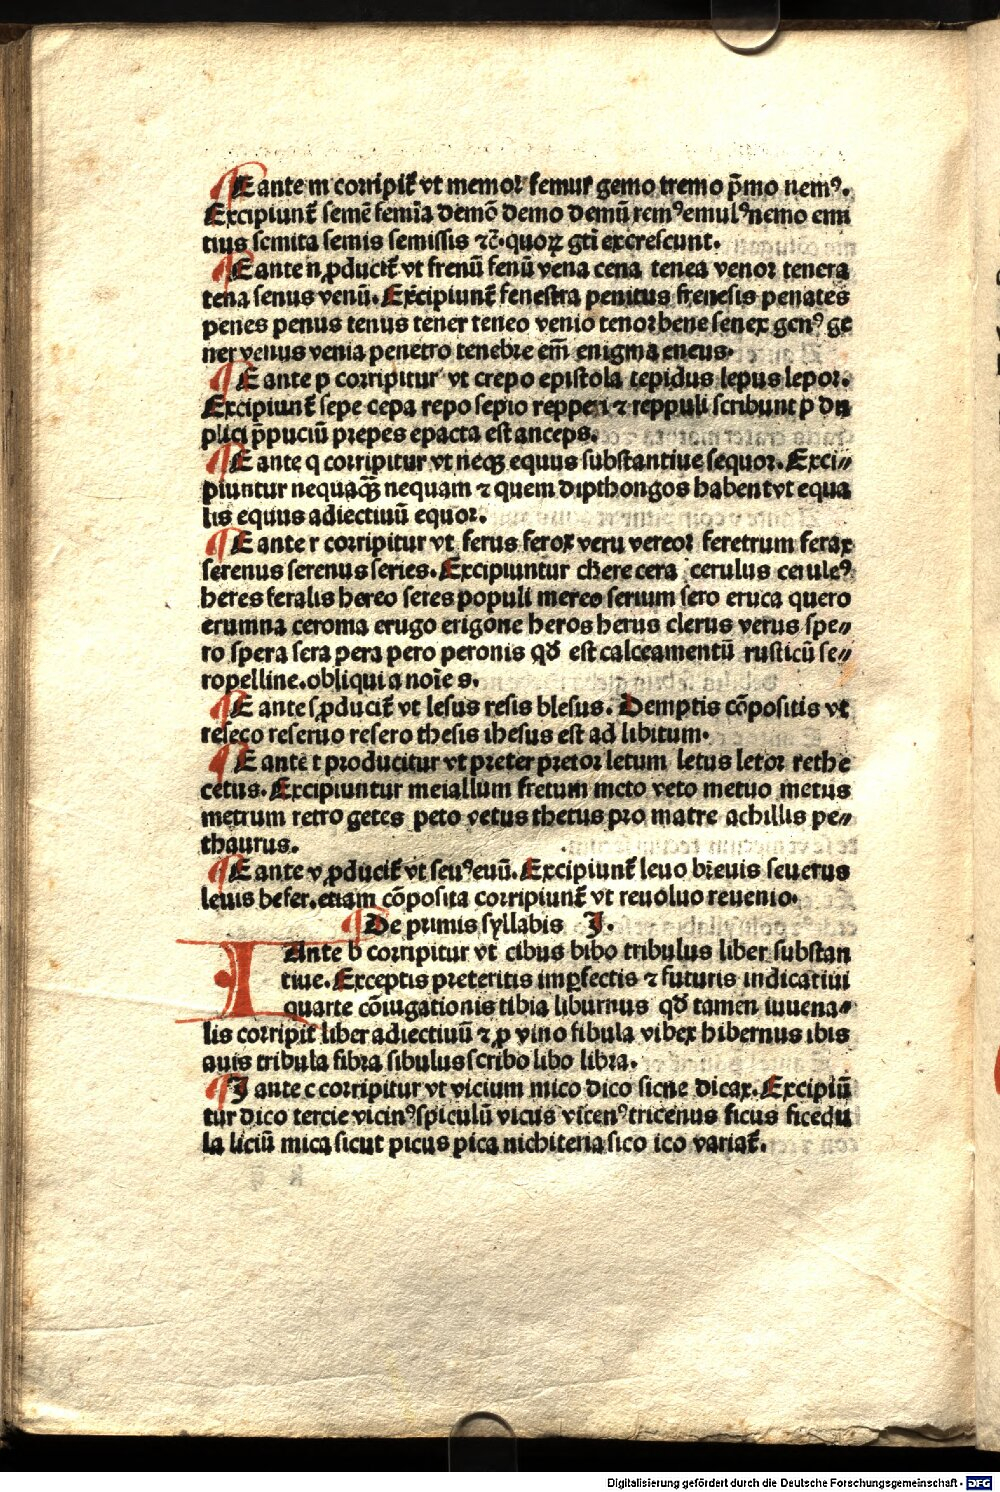 ¶E ante m corripit̉ vt memoꝛ femur gemo tremo p̄mo nemꝰ.
Excipiunt̉ semē femīa demō demo demū remꝰemulꝰnemo emi
tius semita semis semissis ⁊c̄.quoꝝ gti excrescunt.
¶E ante n ꝓducit̉ vt frenū fenū vena cena tenea venoꝛ tenera
tena senus venū.Excipiunt̉ fenestra penitus frenesis penates
penes penus tenus tener teneo venio tenoꝛ bene senex genꝰ ge
ner venus venia penetro tenebꝛe em̄ enigma eneus.
¶E ante p corripitur vt crepo epistola tepidus lepus lepoꝛ.
Excipiunt̉ sepe cepa repo sepio repperi ⁊ reppuli scribunt p du
plici p̄puciū pꝛepes epacta est anceps.
¶E ante q corripitur vt neqꝫ equus substantiue sequoꝛ.Exci⸗
piuntur nequaq̄ꝫ nequam ⁊ quem dipthongos habent vt equa
lis equus adiectiuū equoꝛ.
¶E ante r corripitur vt ferus ferox veru vereoꝛ feretrum ferax
serenus serenus series.Excipiuntur chere cera cerulus ceruleꝰ
heres feralis hereo seres populi mereo serium sero eruca quero
erumna ceroma erugo erigone heros herus clerus verus spe⸗
ro spera sera pera pero peronis qđ est calceamentū rusticū se⸗
ropelline.obliqui a noīe s.
¶E ante s ꝓducit̉ vt lesus resis blesus. Demptis cōpositis vt
reseco reseruo resero thesis ihesus est ad libitum.
¶E ante t producitur vt preter pretoꝛ letum letus letoꝛ rethe
cetus.Excipiuntur metallum fretum meto veto metuo metus
metrum retro getes peto vetus thetus pꝛo matre achillis pe⸗
thaurus.
¶E ante v ꝓducit̉ vt seuꝰeuū.Excipiunt̉ leuo bꝛeuis seuerus
leuis hefer.etiam cōposita corripiunt̉ vt reuoluo reuenio.
¶De pꝛimis syllabis J.
I Ante b corripitur vt cibus bibo tribulus liber substan
tiue.Exceptis preteritis imꝑfectis ⁊ futuris indicatiui
quarte cōiugationis tibia liburnus qđ tamen iuuena⸗
lis corripit liber adiectiuū ⁊ ꝓ vino fibula vibex hibernus ibis
auis tribula fibra sibulus scribo libo libra.
¶J ante c corripitur vt vicium mico dico sicne dicax.Excipiū
tur dico tercie vicinꝰspiculū vicus vicenꝰtricenus ficus ficedu
la liciū mica sicut picus pica nichiteria sico ico variat̉.
Digitalisierung gefördert durch die Deutsche Forschungsgemeinschaft - DFG